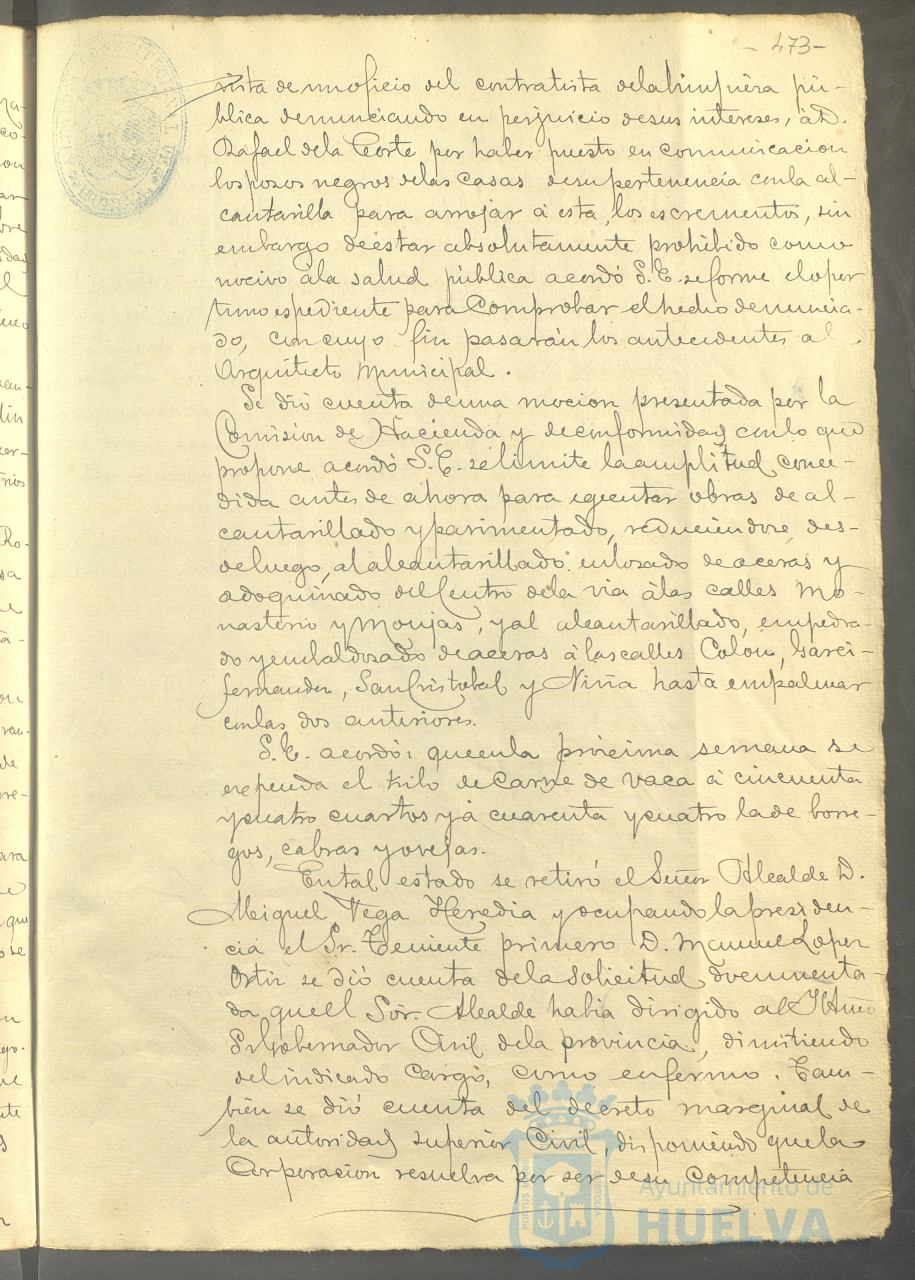 -473-
vista de un oficio del contratista de la limpieza pú-
blica denunciando en perjuicio de sus intereses, á D.
Rafael de la Corte por haber puesto en comunicacion
los pozos negros de las casas de su pertenencia con la al-
cantarilla para arrojar á esta, los escrementos, sin
embargo de estar absolutamente prohibido como
nocivo á la salud pública acordó S. E. se forme el opor
tuno espediente para comprobar el hecho denuncia-
do, con cuyo fin pasarán los antecedentes al
Arquitecto Municipal.
Se dió cuenta de una mocion presentada por la
Comision de Hacienda y de conformidad con lo que
propone acordó S. E. se limite la amplitud conce-
dida antes de ahora para egecutar obras de al-
cantarillado y pavimentado, reduciendose, des-
de luego, al alcantarillado enlosado de aceras y
adoquinado del Centro de la via á las calles Mo-
nasterio y Monjas, y al alcantarillado, empedra-
do y embaldosado de aceras á las calles Colon, Garci-
fernandez, San Cristobal y Niña hasta empalmar
con las dos anteriores.
S. E. acordó: que en la prócima semana se
expenda el kilo de carne de vaca á cincuenta
y cuatro cuartos y á cuarenta y cuatro la de borre-
gos, cabras y ovejas.
En tal estado se retiró el Señor Alcalde D.
Miguel Vega Heredia y ocupando la presiden-
cia el Sr. Teniente primero D. Manuel Lopez
Ortiz se dió cuenta de la solicitud documenta-
da, que el Sór. Alcalde habia dirigido al Iltmo
Sr Gobernador Civil de la provincia, dimitiendo
del indicado cargo, como enfermo. Tam-
bien se dió cuenta del decreto marginal de
la autoridad superior Civil, disponiendo que la
Corporacion resuelva por ser de su competencia
Ayuntamiento de
HUELVA